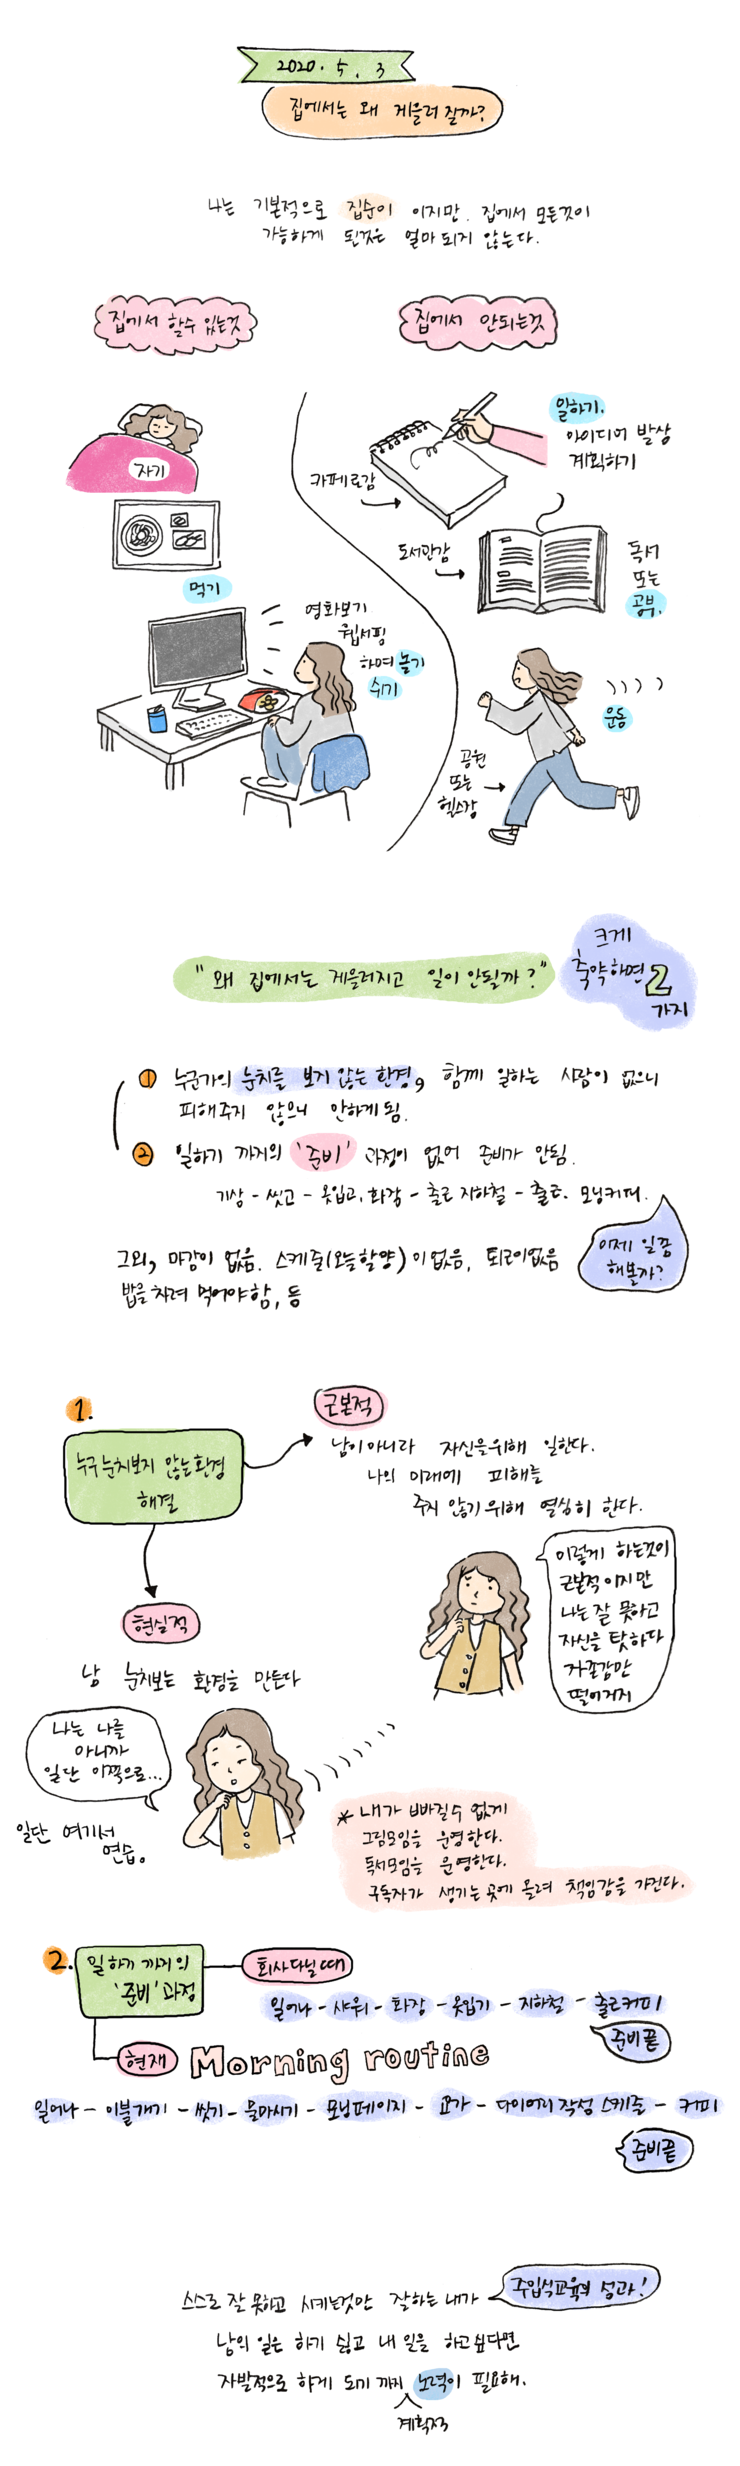 2020. 5. 3
집에서는 왜 게을러 질까?
나는 기본적으로 집순이 이지만. 집에서 모든것이
가능하게 된것은 얼마 되지 않는다.
집에서 할수 있는것
집에서 안되는것
자기
먹기
영화보기
웹서핑
하며 놀기
쉬기
일하기.
아이디어 발상
계획하기
카페로감
도서관감
독서
또는
공부.
운동
공원
또는
헬스장
"왜 집에서는 게을러지고 일이 안될까?"
크게
축약하면 2
가지
① 누군가의 눈치를 보지 않는 환경, 함께 일하는 사람이 없으니
피해주지 않으니 안하게 됨.
② 일하기 까지의 '준비' 과정이 없어 준비가 안됨.
기상 - 씻고 - 옷입고, 화장 - 출근 지하철 - 출근. 모닝커피.
이제 일좀
해볼까?
그외, 마감이 없음. 스케줄(오늘할양)이 없음, 퇴근이없음
밥을 차려 먹어야함, 등
1.
누구 눈치보지 않는 환경
해결
근본적
남이 아니라 자신을 위해 일한다.
나의 미래에 피해를
주지 않기 위해 열심히 한다.
이렇게 하는것이
근본적 이지만
나는 잘 못하고
자신을 탓하다
자존감만
떨어지지
현실적
남 눈치보는 환경을 만든다
나는 나를
아니까
일단 이쪽으로...
일단 여기서
연습.
* 내가 빠질수 없게
그림모임을 운영한다.
독서모임을 운영한다.
구독자가 생기는 곳에 올려 책임감을 가진다.
2.
일하기 까지의
'준비' 과정
회사다닐때
일어나 - 샤워 - 화장 - 옷입기 - 지하철 - 출근커피
준비끝
현재
Morning routine
일어나 - 이불개기 - 씻기 - 물마시기 - 모닝페이지 - 요가 - 다이어리 작성 스케줄 - 커피
준비끝
스스로 잘 못하고 시키는것만 잘하는 내가
주입식교육의 성과!
남의 일은 하기 싫고 내 일을 하고싶다면
자발적으로 하게 되기 까지 노력이 필요해.
계획적